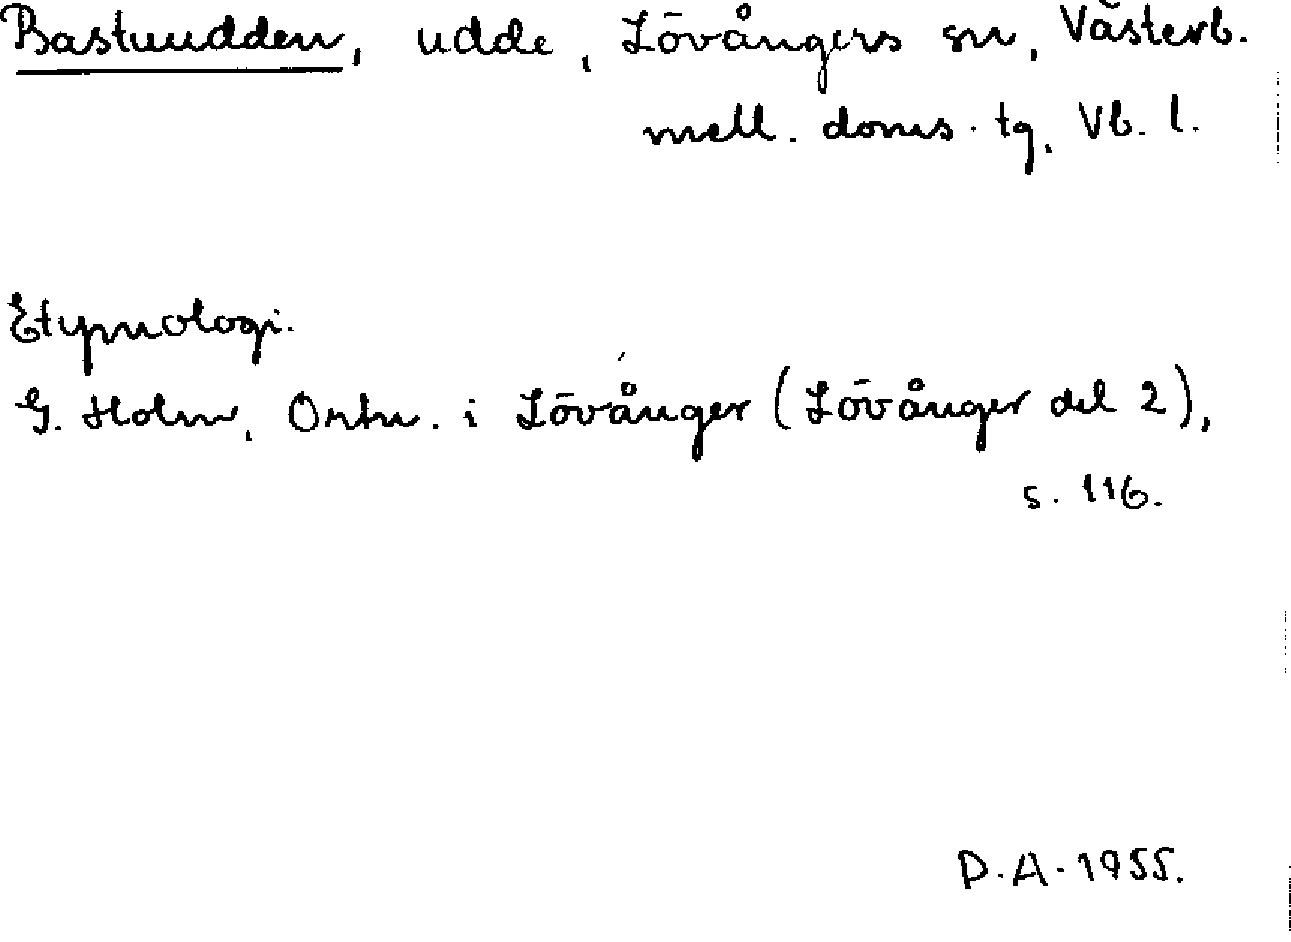 Bastuudden, udde, Lövångers sn, Västerb.
mell. doms. tg, Vb. l.
Etymologi.
G. Holm, Ortn. i Lövånger (Lövånger del 2),
s. 116.
D.A. 1955.